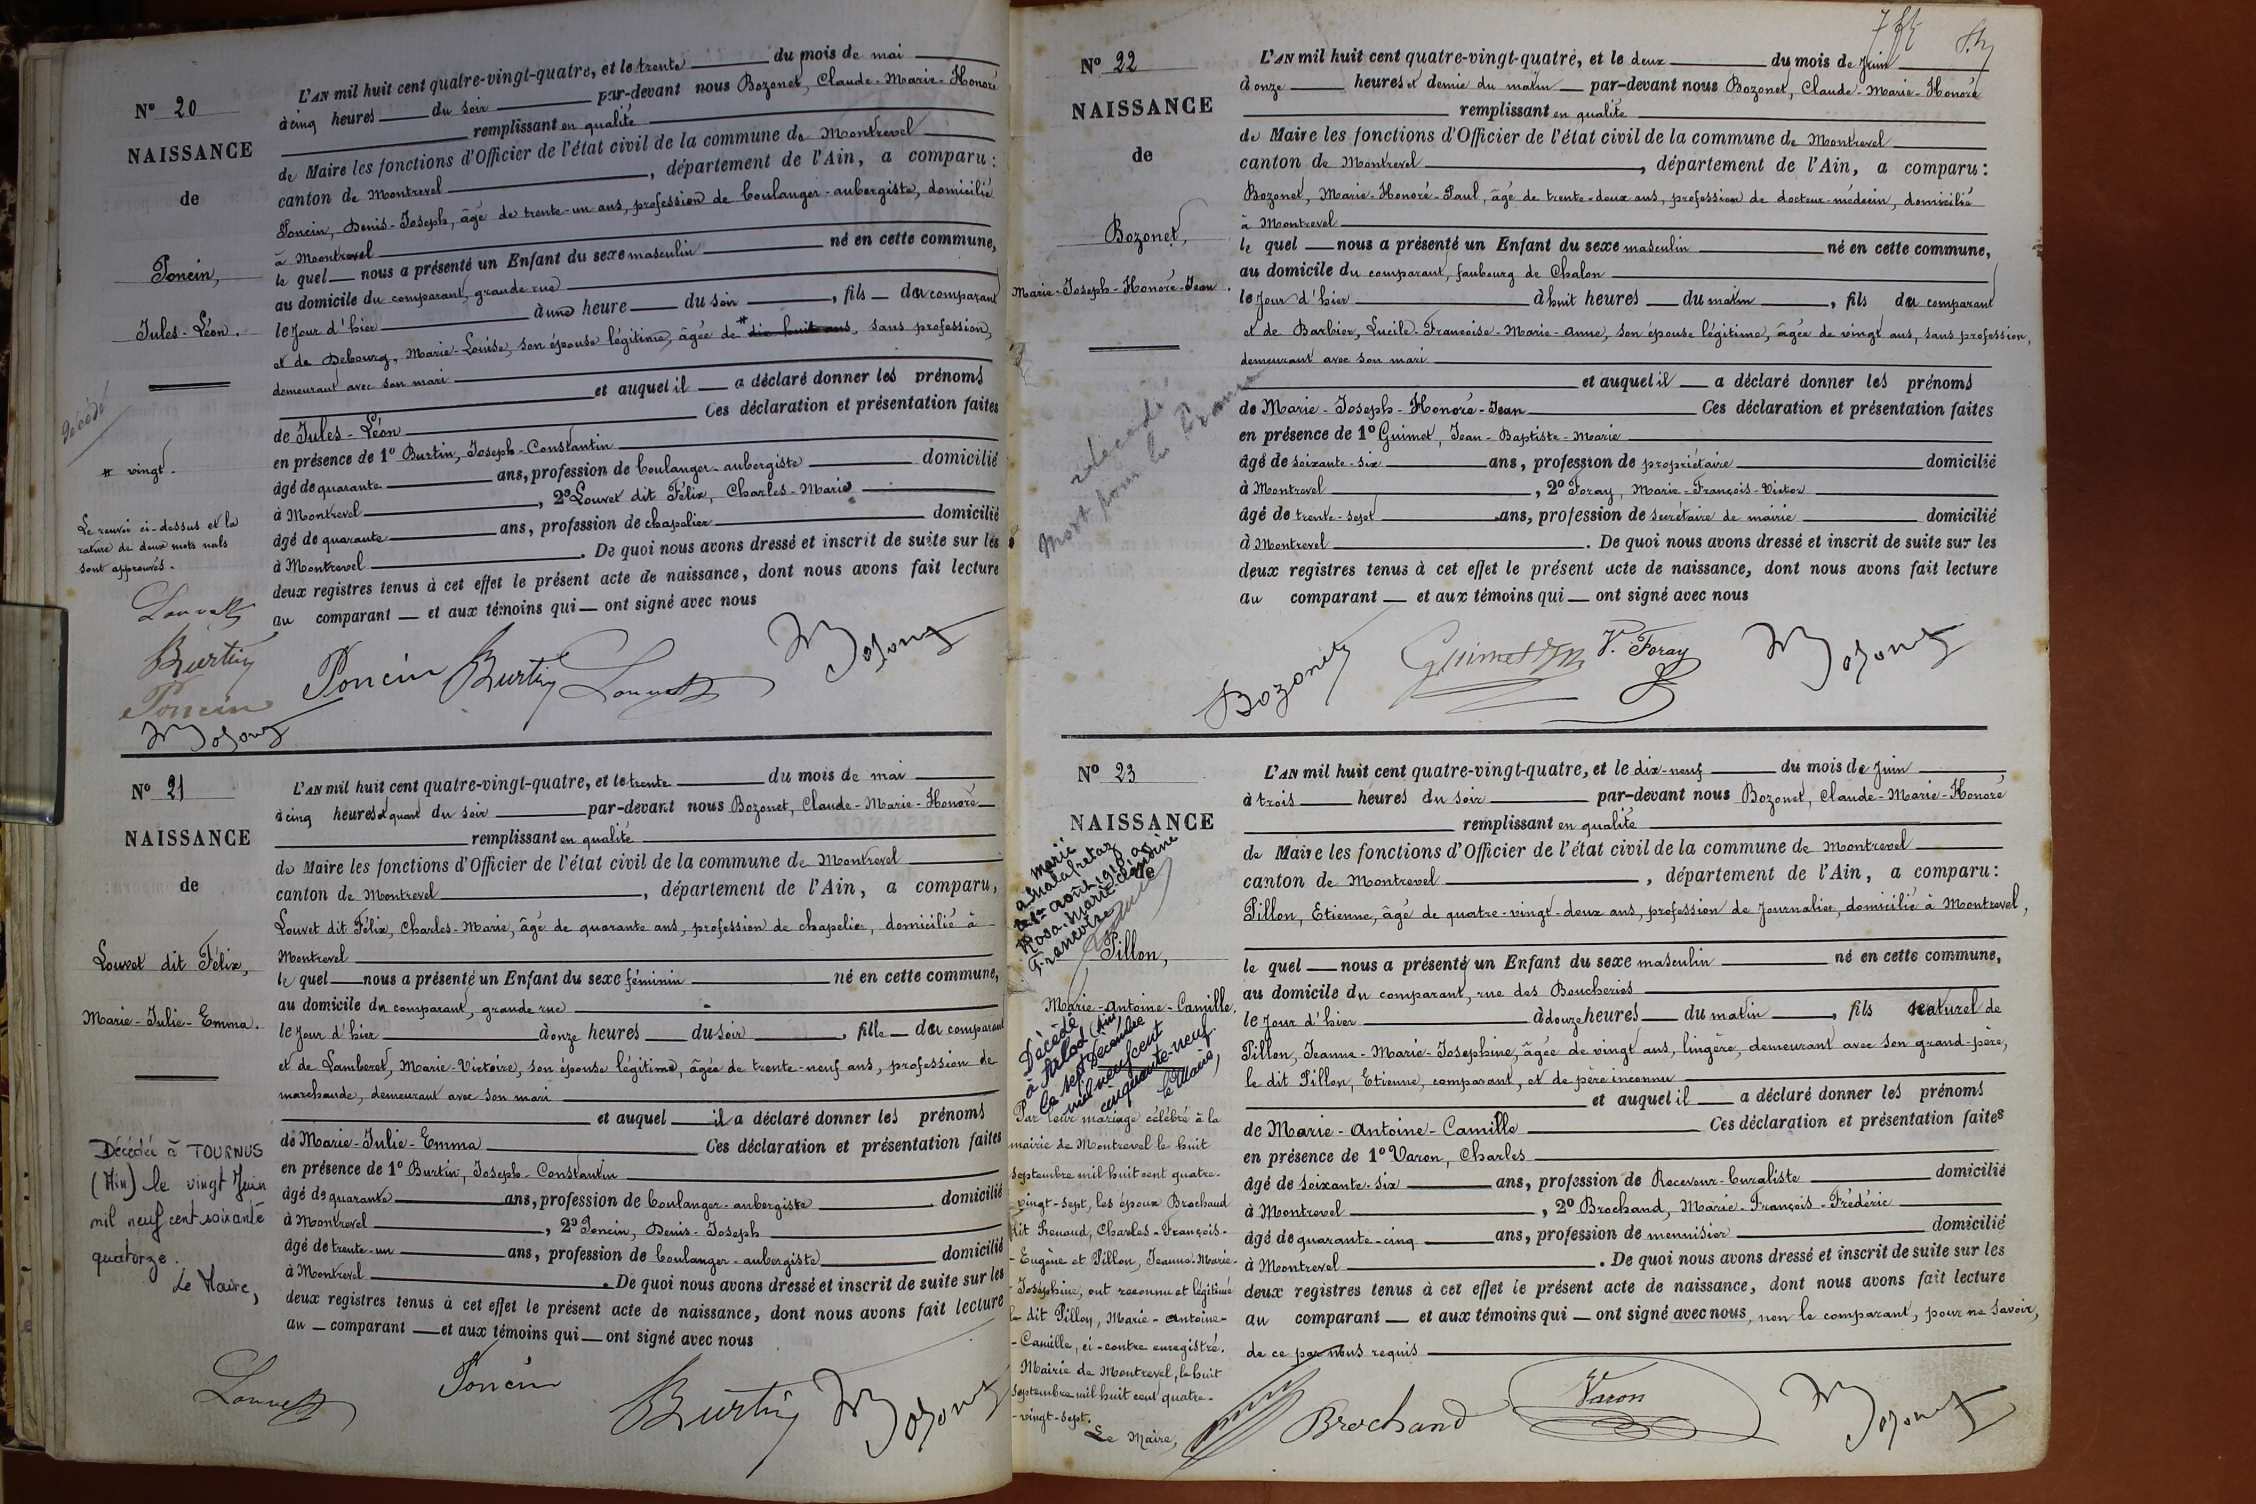 N° 20
NAISSANCE
de
Poncin,
Jules-Léon.
Décédé
# vingt.
Le renvoi ci-dessus et la
rature de deux mots nuls
sont approuvés.
Louvet
Burtin
Poncin
Bozonet
L'AN mil huit cent quatre-vingt-quatre, et le trente du mois de mai
à cinq heures du soir par-devant nous Bozonet, Claude-Marie-Honoré
remplissant en qualité
de Maire les fonctions d'Officier de l'état civil de la commune de Montrevel
canton de Montrevel, département de l'Ain, a comparu:
Poncin, Denis-Joseph, âgé de trente-un ans, profession de boulanger-aubergiste, domicilié
à Montrevel
le quel nous a présenté un Enfant du sexe masculin né en cette commune,
au domicile du comparant, grande rue
le jour d'hier à une heure du soir, fils du comparant
et de Debourg, Marie-Louise, son épouse légitime, âgée de # dix huit ans, sans profession,
demeurant avec son mari
et auquel il a déclaré donner les prénoms
de Jules-Léon Ces déclaration et présentation faites
en présence de 1° Burtin, Joseph-Constantin
âgé de quarante ans, profession de boulanger-aubergiste domicilié
à Montrevel, 2° Louvet dit Félix, Charles-Marie
âgé de quarante ans, profession de chapelier domicilié
à Montrevel. De quoi nous avons dressé et inscrit de suite sur les
deux registres tenus à cet effet le présent acte de naissance, dont nous avons fait lecture
au comparant et aux témoins qui ont signé avec nous
Poncin Burtin Louvet Bozonet
N° 21
NAISSANCE
de
Louvet dit Félix,
Marie-Julie-Emma.
Décédée à TOURNUS
(Ain) le vingt Juin
mil neuf cent soixante
quatorze.
Le Maire,
L'AN mil huit cent quatre-vingt-quatre, et le trente du mois de mai
à cinq heures et quart du soir par-devant nous Bozonet, Claude-Marie-Honoré
remplissant en qualité
de Maire les fonctions d'Officier de l'état civil de la commune de Montrevel
canton de Montrevel, département de l'Ain, a comparu,
Louvet dit Félix, Charles-Marie, âgé de quarante ans, profession de chapelier, domicilié à
Montrevel
le quel nous a présenté un Enfant du sexe féminin né en cette commune,
au domicile du comparant, grande rue
le jour d'hier à onze heures du soir, fille du comparant
et de Lamberet, Marie-Victoire, son épouse légitime, âgée de trente-neuf ans, profession de
marchande, demeurant avec son mari
et auquel il a déclaré donner les prénoms
de Marie-Julie-Emma Ces déclaration et présentation faites
en présence de 1° Burtin, Joseph-Constantin
âgé de quarante ans, profession de boulanger-aubergiste domicilié
à Montrevel, 2° Poncin, Denis-Joseph
âgé de trente-un ans, profession de boulanger-aubergiste domicilié
à Montrevel. De quoi nous avons dressé et inscrit de suite sur les
deux registres tenus à cet effet le présent acte de naissance, dont nous avons fait lecture
au comparant et aux témoins qui ont signé avec nous
Louvet Poncin Burtin Bozonet
N° 22
NAISSANCE
de
Bozonet,
Marie-Joseph-Honoré-Jean.
décédé
Mort pour la France
L'AN mil huit cent quatre-vingt-quatre, et le deux du mois de juin
à onze heures et demie du matin par-devant nous Bozonet, Claude-Marie-Honoré
remplissant en qualité
de Maire les fonctions d'Officier de l'état civil de la commune de Montrevel
canton de Montrevel, département de l'Ain, a comparu:
Bozonet, Marie-Honoré-Paul, âgé de trente-deux ans, profession de docteur-médecin, domicilié
à Montrevel
le quel nous a présenté un Enfant du sexe masculin né en cette commune,
au domicile du comparant, faubourg de Chalon
le jour d'hier à huit heures du matin, fils du comparant
et de Barbier, Lucile-Françoise-Marie-Anne, son épouse légitime, âgée de vingt ans, sans profession,
demeurant avec son mari
et auquel il a déclaré donner les prénoms
de Marie-Joseph-Honoré-Jean Ces déclaration et présentation faites
en présence de 1° Guimet, Jean-Baptiste-Marie
âgé de soixante-six ans, profession de propriétaire domicilié
à Montrevel, 2° Foray, Marie-François-Victor
âgé de trente-sept ans, profession de secrétaire de mairie domicilié
à Montrevel. De quoi nous avons dressé et inscrit de suite sur les
deux registres tenus à cet effet le présent acte de naissance, dont nous avons fait lecture
au comparant et aux témoins qui ont signé avec nous
Bozonet Guimet V. Foray Bozonet
N° 23
NAISSANCE
de
Marié
à Malafretaz
le 1er août 1918 à
Rosa-Marie-Claudine
Françoise
Pillon,
Marie-Antoine-Camille.
Décédé
à Arlod (Ain)
le sept Décembre
mil neuf cent
cinquante-neuf.
le Maire,
Par leur mariage célébré à la
mairie de Montrevel le huit
septembre mil huit cent quatre-
vingt-sept, les époux Brochand
dit Renoud, Charles-François-
-Eugène et Pillon, Jeanne-Marie-
-Joséphine, ont reconnu et légitimé
le dit Pillon, Marie-Antoine-
-Camille, ci-contre enregistré.
Mairie de Montrevel, le huit
septembre mil huit cent quatre-
-vingt-sept.
Le Maire,
L'AN mil huit cent quatre-vingt-quatre, et le dix-neuf du mois de juin
à trois heures du soir par-devant nous Bozonet, Claude-Marie-Honoré
remplissant en qualité
de Maire les fonctions d'Officier de l'état civil de la commune de Montrevel
canton de Montrevel, département de l'Ain, a comparu:
Pillon, Etienne, âgé de quatre-vingt-deux ans, profession de journalier, domicilié à Montrevel,
le quel nous a présenté un Enfant du sexe masculin né en cette commune,
au domicile du comparant, rue des Boucheries
le jour d'hier à douze heures du matin, fils naturel de
Pillon, Jeanne-Marie-Joséphine, âgée de vingt ans, lingère, demeurant avec son grand-père,
le dit Pillon, Etienne, comparant, et de père inconnu
et auquel il a déclaré donner les prénoms
de Marie-Antoine-Camille Ces déclaration et présentation faites
en présence de 1° Varon, Charles
âgé de soixante-six ans, profession de Receveur-buraliste domicilié
à Montrevel, 2° Brochand, Marie-François-Frédéric
âgé de quarante-cinq ans, profession de menuisier domicilié
à Montrevel. De quoi nous avons dressé et inscrit de suite sur les
deux registres tenus à cet effet le présent acte de naissance, dont nous avons fait lecture
au comparant et aux témoins qui ont signé avec nous, non le comparant, pour ne savoir,
de ce par nous requis
Brochand Varon Bozonet